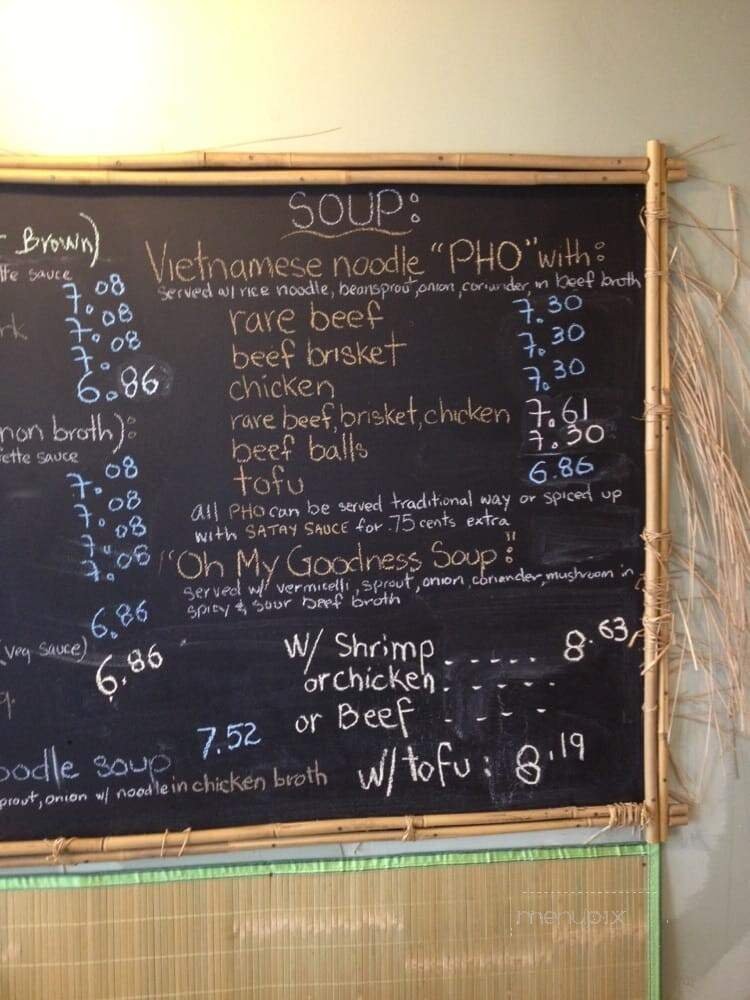 SOUP:
Vietnamese noodle "PHO" with:
served w/ rice noodle, beansprout, onion, coriander, in beef broth
rare beef 7.30
beef brisket 7.30
chicken 7.30
rare beef, brisket, chicken 7.61
beef balls 7.30
tofu 6.86
all PHO can be served traditional way or spiced up
with SATAY SAUCE for .75 cents extra
"Oh My Goodness Soup":
served w/ vermicelli, sprout, onion, coriander, mushroom in
spicy & sour beef broth
W/ Shrimp ..... 8.63
or chicken .....
or Beef ....
w/ tofu : 8.19
Brown)
sauce
7.08
7.08
7.08
6.86
broth):
sauce
7.08
7.08
7.08
7.08
6.86
(veg sauce)
6.86
7.52
soup
onion w/ noodle in chicken broth
menupix